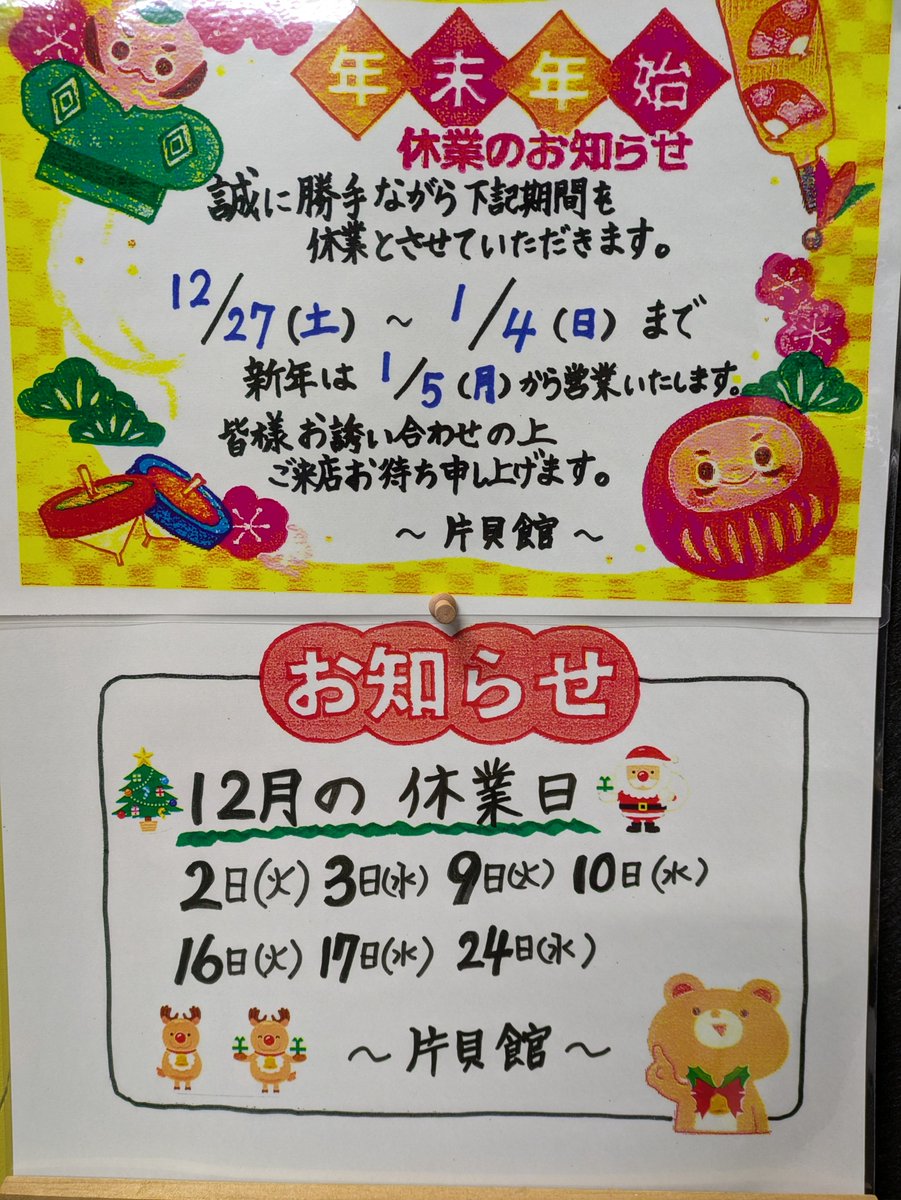 年末年始
休業のお知らせ
誠に勝手ながら下記期間を
休業とさせていただきます。
12/27(土) ~ 1/4(日) まで
新年は 1/5(月)から営業いたします。
皆様お誘い合わせの上
ご来店お待ち申し上げます。
~ 片貝館 ~
お知らせ
12月の 休業日
2日(火) 3日(水) 9日(火) 10日(水)
16日(火) 17日(水) 24日(水)
~ 片貝館 ~